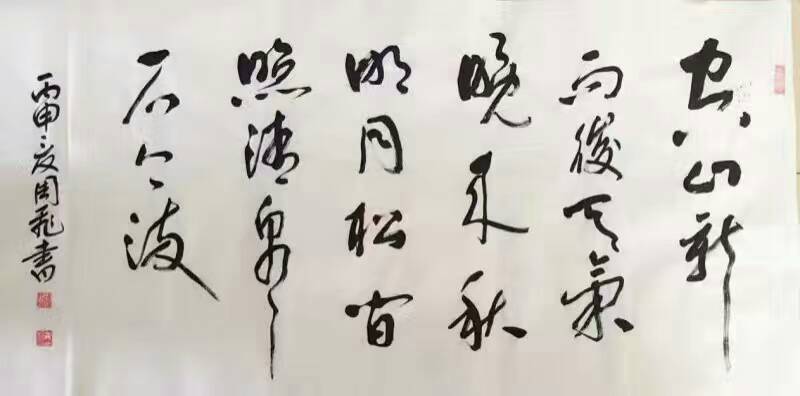 空山新
雨後天氣
晚来秋
明月松间
照清泉
石上流
丙申夏周飛書